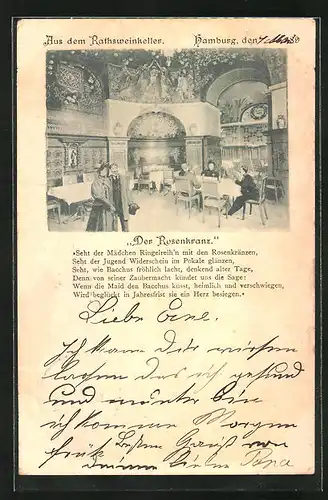 Aus dem Rathsweinkeller. Hamburg, den
„Der Rosenkranz."
»Seht der Mädchen Ringelreih'n mit den Rosenkränzen,
Seht der Jugend Widerschein im Pokale glänzen,
Seht, wie Bacchus fröhlich lacht, denkend alter Tage,
Denn von seiner Zaubermacht kündet uns die Sage:
Wenn die Maid den Bacchus küsst, heimlich und verschwiegen,
Wird beglückt in Jahresfrist sie ein Herz besiegen.«
Liebe
Ich kann Dir
lassen das ich gesund
und munter bin
ich komme Morgen
früh Besten Gruß von
deinem Lieben Papa